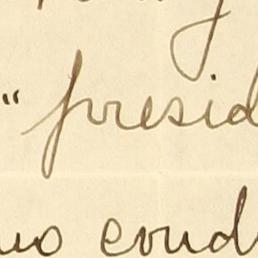 " presid
uo cond